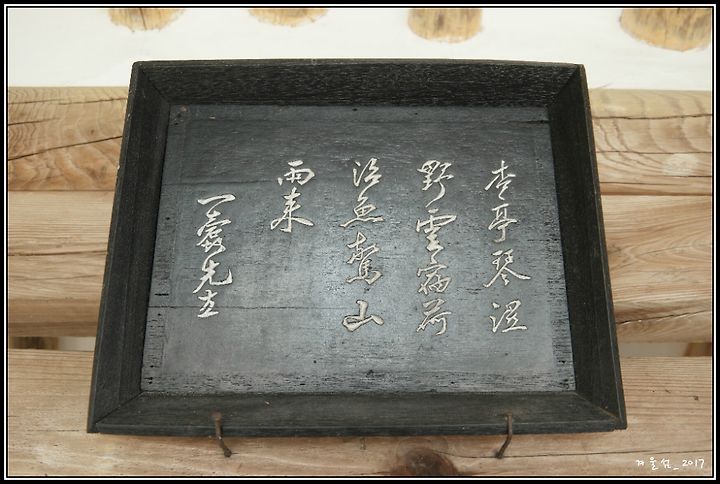 杏亭琴湿
野雲宿荷
沼魚驚山
雨来
一蠹先生
겨울섬_2017